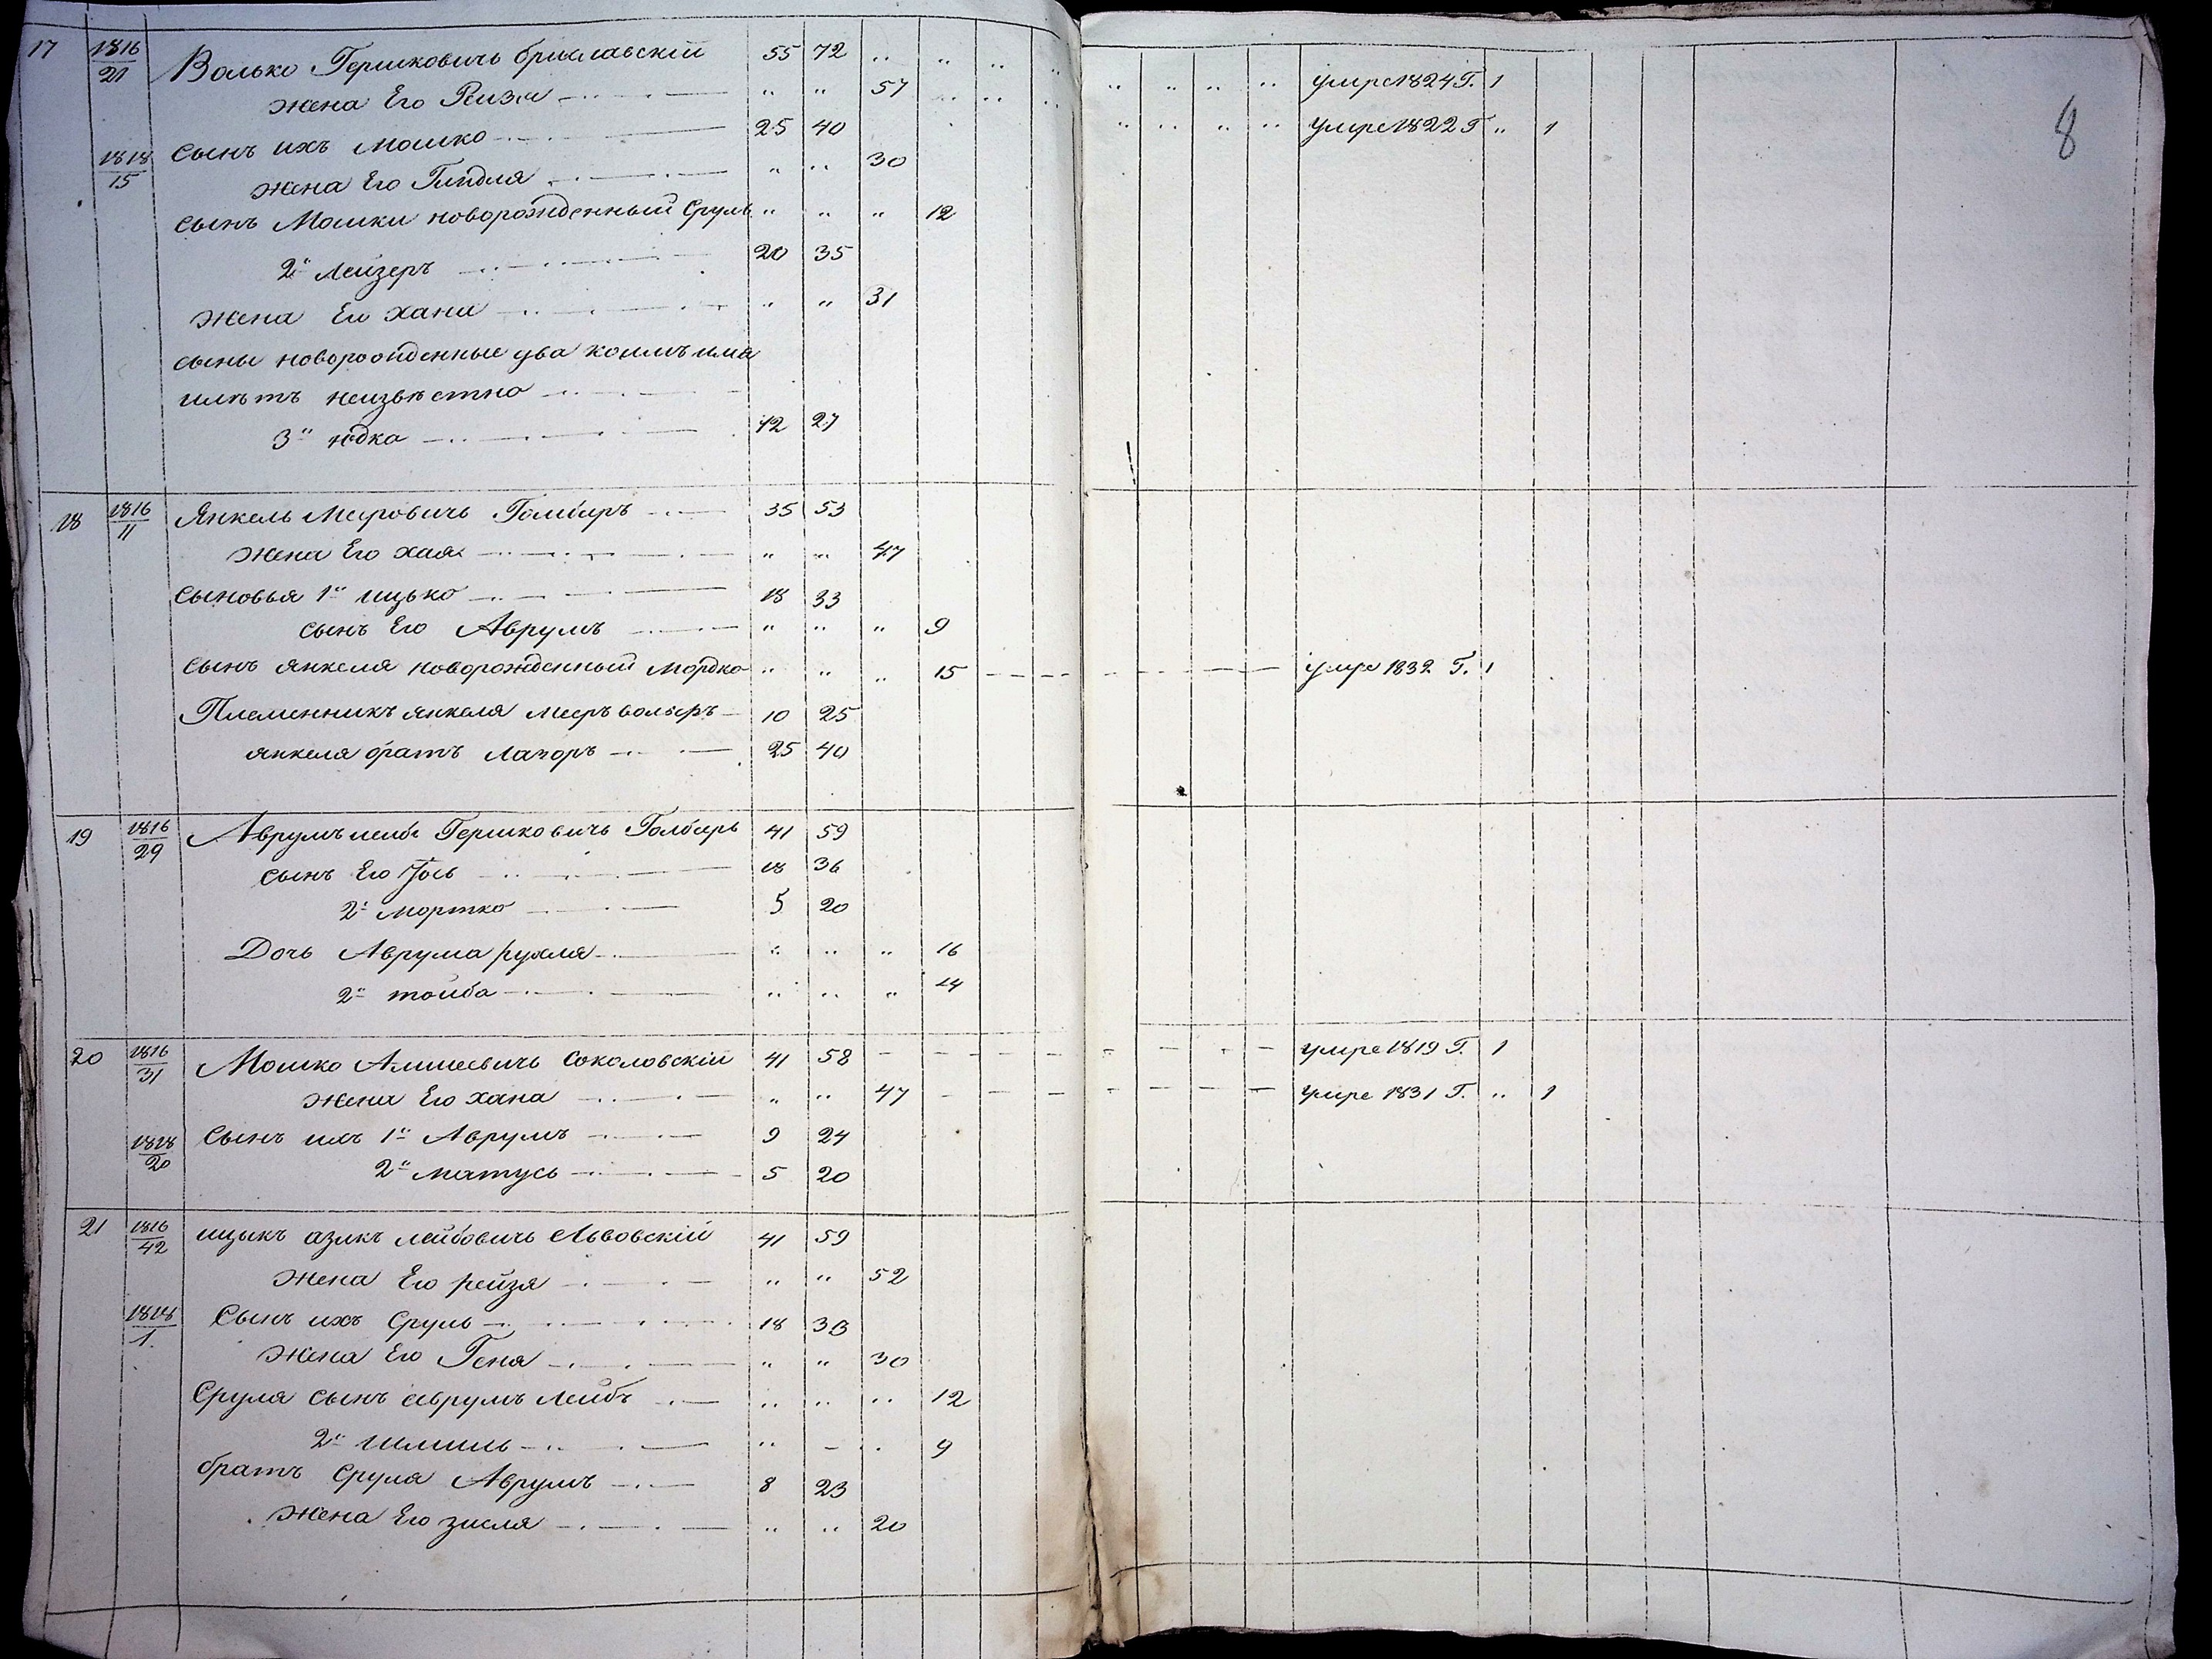 8
17 1816/21 Волько Гершковичь Бриславскій 55 72 умре 1824 Г. 1
жена Его Рейзя 57 умре 1822 Г 1
1818/15 Сынъ ихъ Мошко 25 40
жена Его Гиндля 30
сынъ Мошки новорожденный Сруль 12
2й Лейзеръ 20 35
жена Его хана 31
сыны новорожденные два коимъ има
илѣтъ неизвѣстно
3й юдка 12 27
18 1816/11 Янкель Меровичь Голбиръ 35 53
жена Его хая 47
Сыновья 1й ицько 18 33
сынъ Его Аврумъ 9
сынъ янкеля новорожденный Мордко 15 умре 1832 Г. 1
Племенникъ янкеля Меръ волъфъ 10 25
янкеля братъ Лазоръ 25 40
19 1816/29 Аврумъ лейбъ Гершковичь Голбиръ 41 59
сынъ Его Іось 18 36
2й Мортко 5 20
Дочь Аврума рухля 16
2я тойба 14
20 1816/31 Мошко Соколовскій 41 58 умре 1819 Г. 1
жена Его хана 47 умре 1831 Г. 1
1818/20 Сынъ ихъ 1й Аврумъ 9 24
2й Матусь 5 20
21 1816/42 ицыкъ азикъ лейбовичь Львовскій 41 59
жена Его рейзя 52
1818/1. Сынъ ихъ Сруль 18 33
жена Его Геня 30
Сруля сынъ аврумъ Лейбъ 12
2й 9
братъ Сруля Аврумъ 8 23
жена Его зисля 20